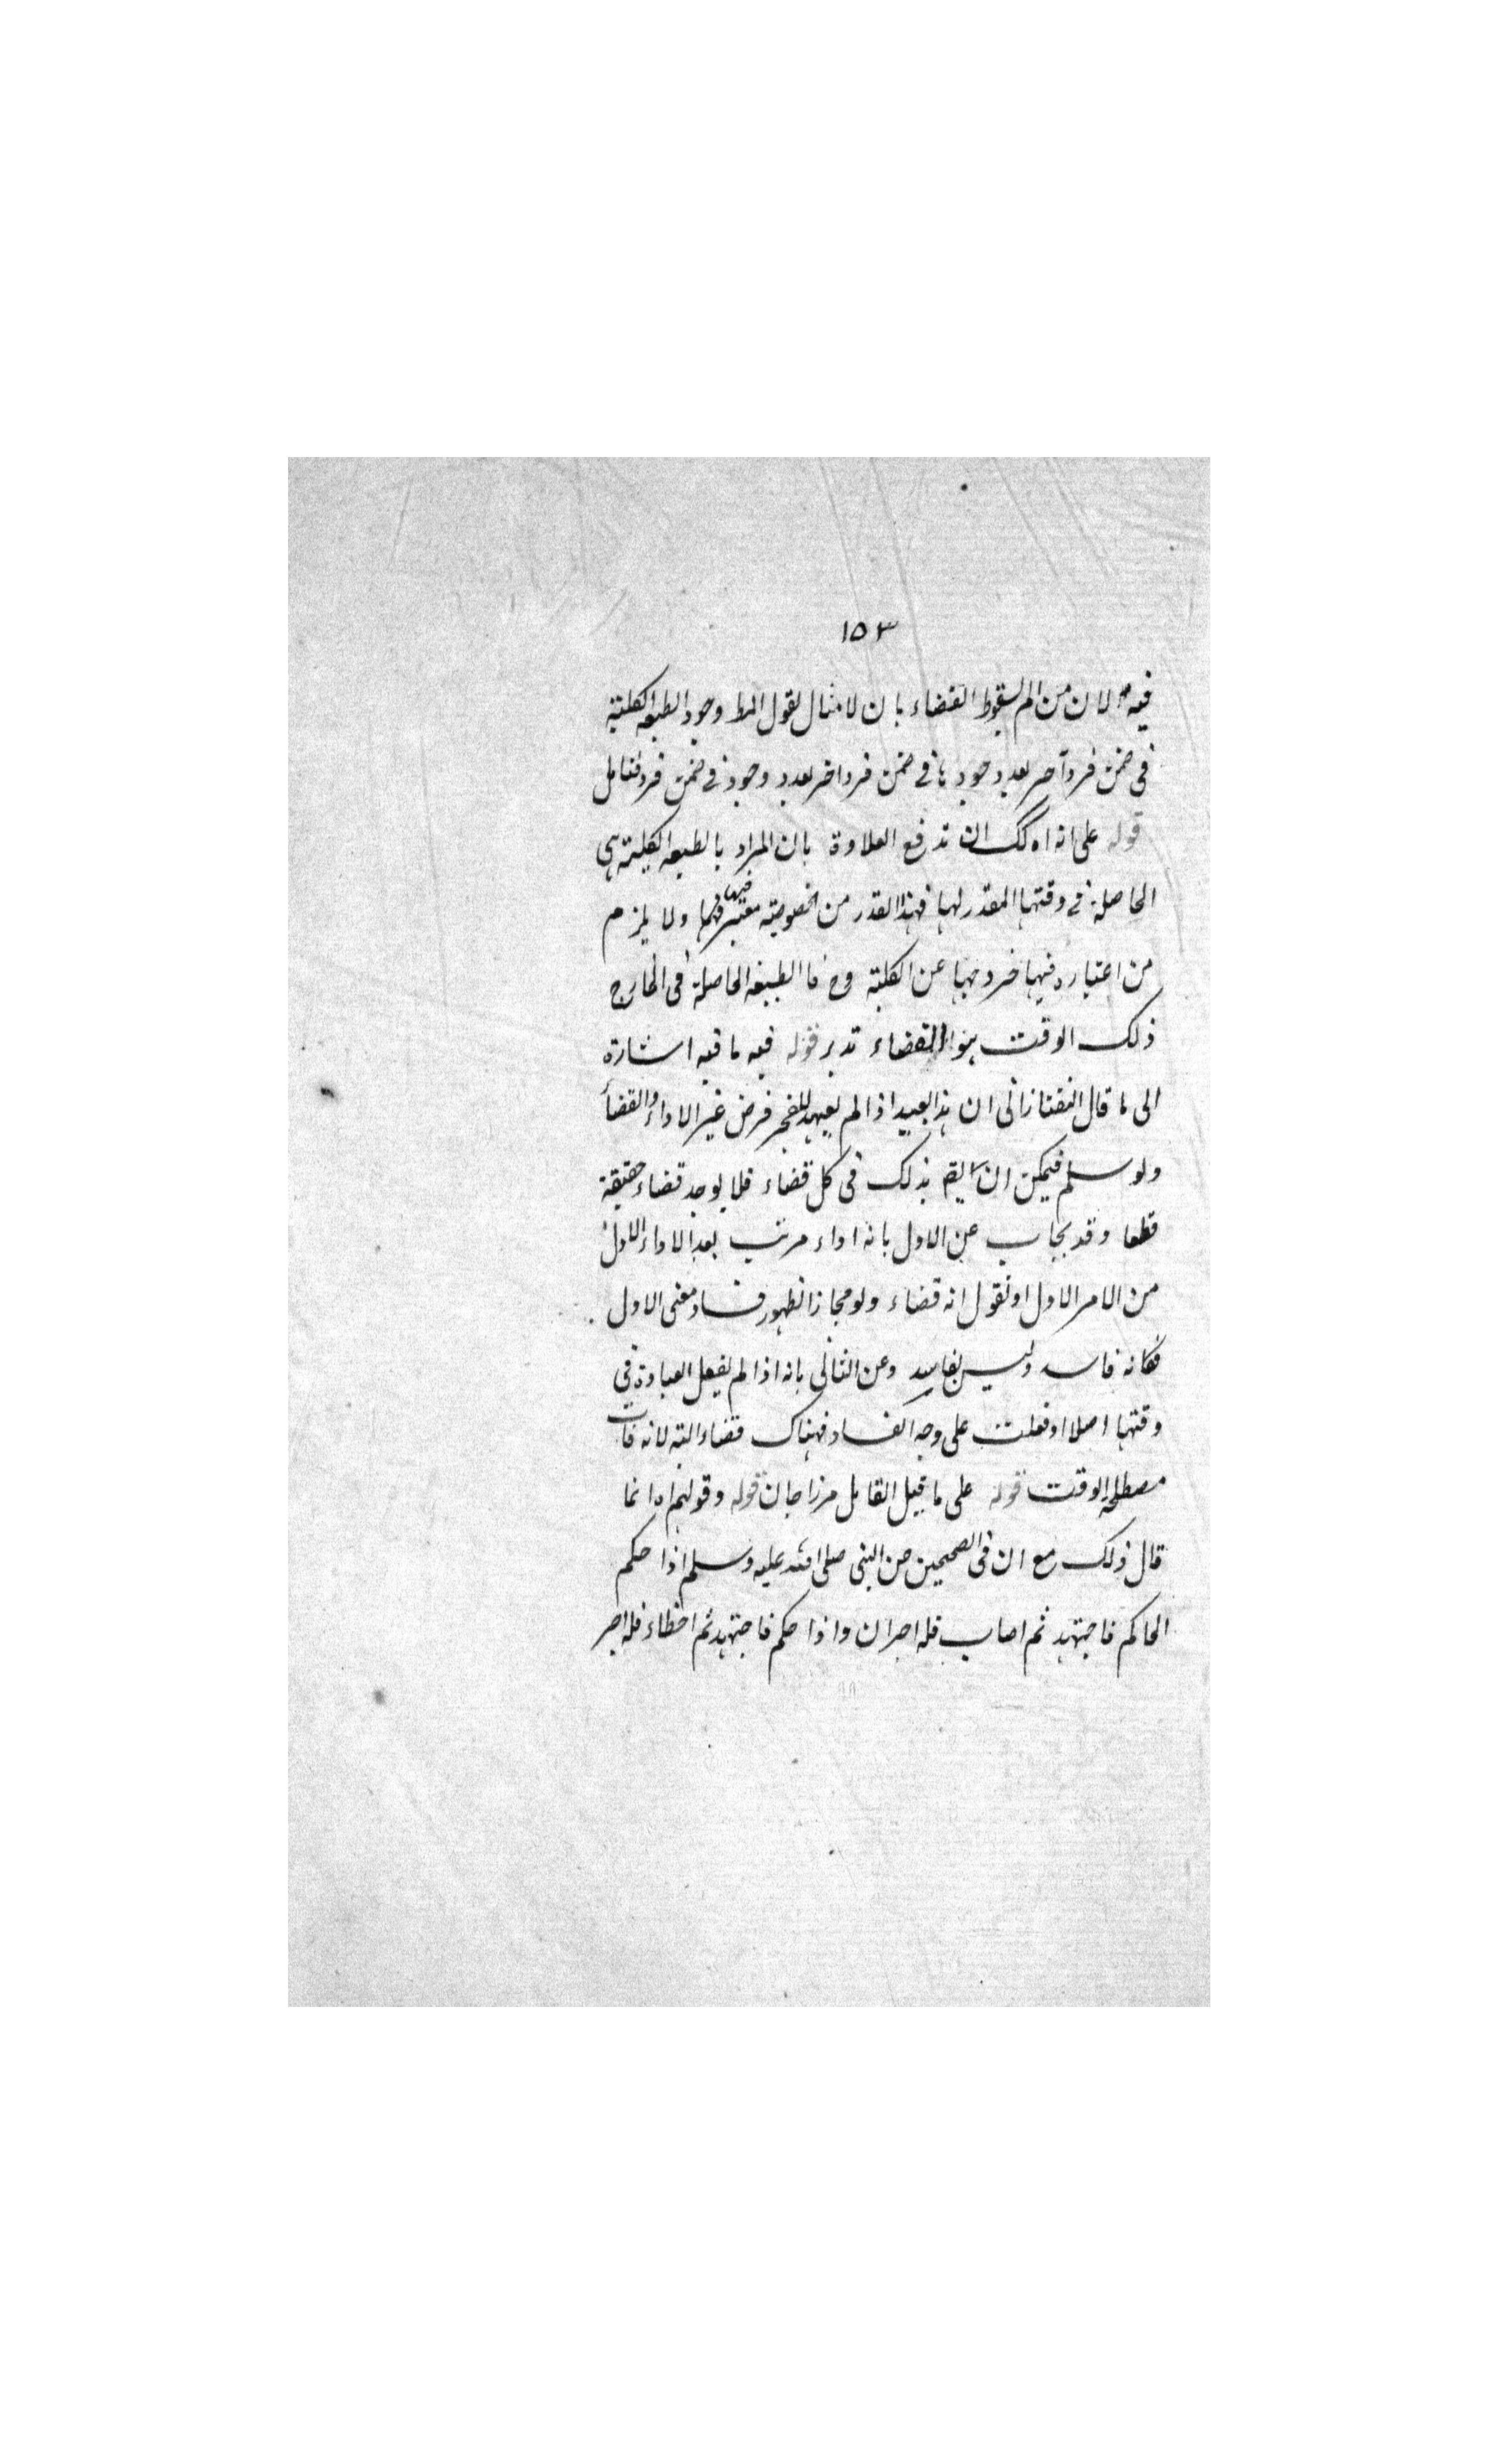 ١٥٣
فيه لان من لم يسقط القضاء بان لامثال لقول المط وجود الطبيعة الكلية
فى ضمن فرد آخر بعد وجودها فى ضمن فرد اخر بعد وجوده فى ضمن فرد فتامل
قوله على انه اه لك ان تدفع العلاوة بان المراد بالطبيعة الكلية هى
الحاصلة فى وقتها المقدر لها فهذا القدر من الخصوصية معتبر فيها ولا يلزم
من اعتباره فيها خروجها عن الكلية وح فالطبيعة الحاصلة فى الخارج
ذلك الوقت هو القضاء تدبر قوله فيه ما فيه اشارة
الى ما قال التفتازانى ان هذا بعيد اذا لم يعهد للفجر فرض غير الاداء والقضأ
ولو سلم فيمكن ان يقم بذلك فى كل قضاء فلا يوجد قضاء حقيقة
قطعا وقد يجاب عن الاول بانه اداء مرتب بعد الاداء الاول
من الامر الاول او نقول انه قضاء ولو مجازا لظهور فساد معنى الاول
فكانه فاسد وليس بفاسد وعن الثانى بانه اذا لم يفعل العبادة فى
وقتها اصلا او فعلت على وجه الفساد فهناك قضاء البته لانه فات
مصطلحة الوقت قوله على ما قيل القايل مرزا جان قوله وقولهم اه انما
قال ذلك مع ان فى الصحيحين عن النبى صلى الله عليه وسلم اذا حكم
الحاكم فاجتهد ثم اصاب فله اجران واذا حكم فاجتهد ثم اخطاء فله اجر